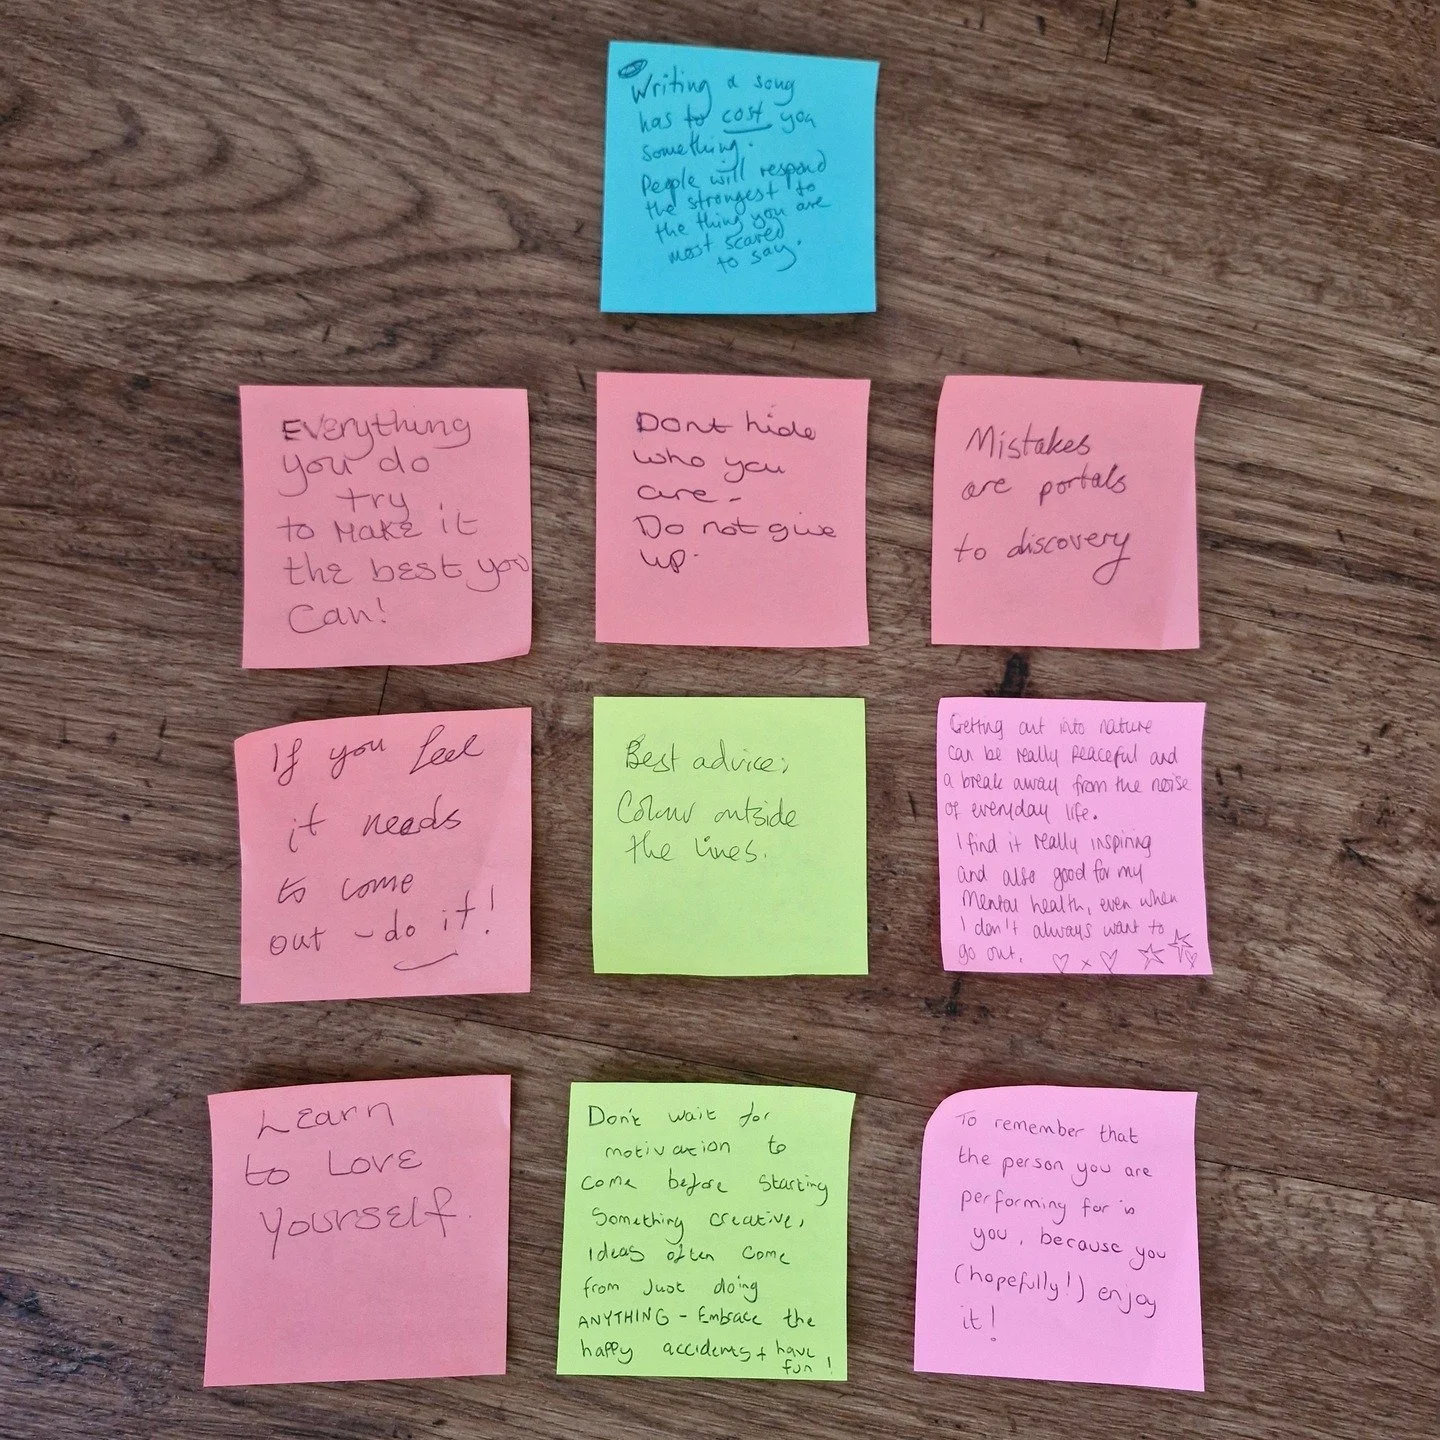 Writing a song
has to cost you
something.
People will respond
the strongest to
the thing you are
most scared
to say.
Everything
you do
try
to make it
the best you
can!
Dont hide
who you
are -
Do not give
up.
Mistakes
are portals
to discovery
If you feel
it needs
to come
out - do it!
Best advice;
Colour outside
the lines.
Getting out into nature
can be really peaceful and
a break away from the noise
of everyday life.
I find it really inspiring
and also good for my
Mental health, even when
I don't always want to
go out.
Learn
to Love
yourself.
Don't wait for
motivation to
come before starting
something creative,
ideas often come
from just doing
ANYTHING - Embrace the
happy accidents + have
fun!
To remember that
the person you are
performing for is
you, because you
(hopefully!) enjoy
it!